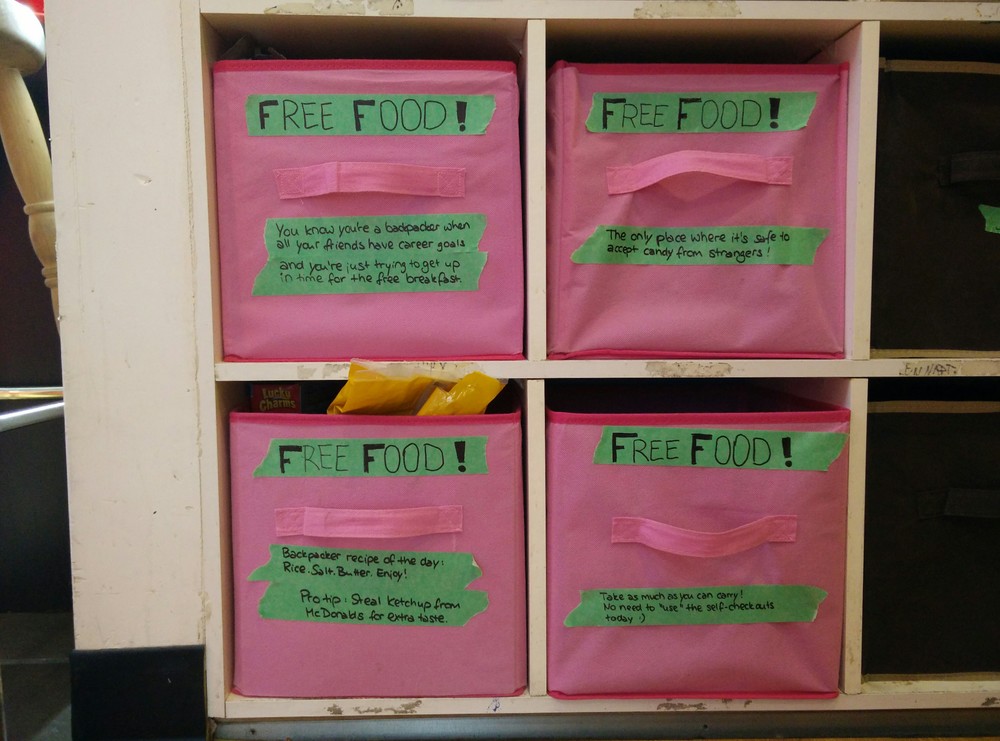 FREE FOOD!
You know you're a backpacker when
all your friends have career goals
and you're just trying to get up
in time for the free breakfast.
FREE FOOD!
The only place where it's safe to
accept candy from strangers!
Lucky
Charms
FREE FOOD!
Backpacker recipe of the day:
Rice. Salt. Butter. Enjoy!
Pro tip: Steal Ketchup from
McDonalds for extra taste.
FREE FOOD!
Take as much as you can carry!
No need to "use" the self-checkouts
today :)